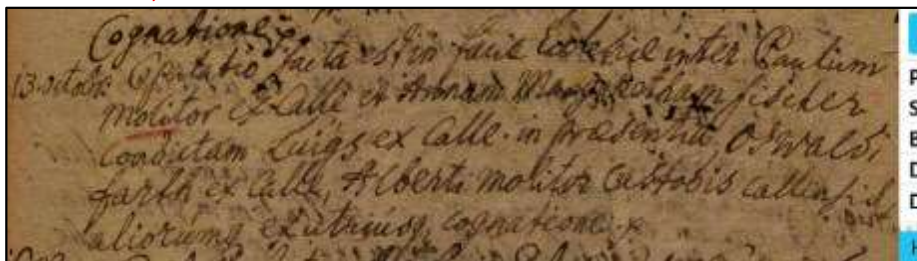 Cognatione
13. octobr: Copulatio facta est in facie Ecclesiae inter Paulum
molitor ex Calle et Annam Margaretham fischer
conductam Luigs ex Calle. in praesentia Oswaldi
farth ex Calle, Alberti molitor Custodis callensis
aliorumq ex utriusq cognatione